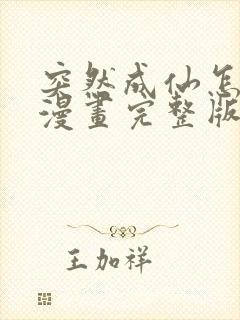 突然成仙怎
漫畫完整版
王加祥